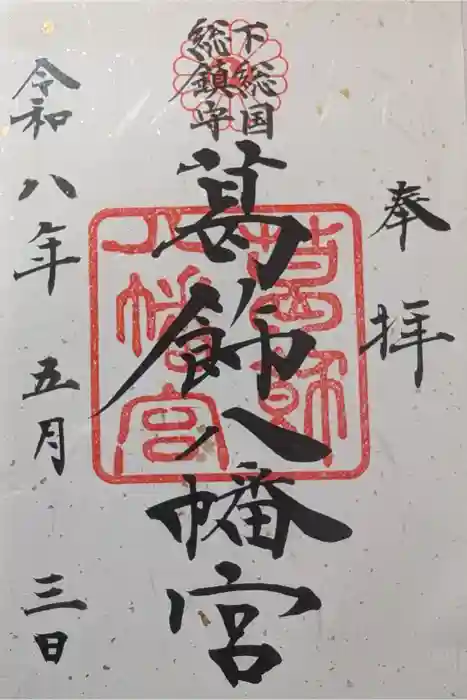 奉拝
下総国
総鎮守
葛飾八幡宮
葛飾
八幡宮
令和八年五月三日